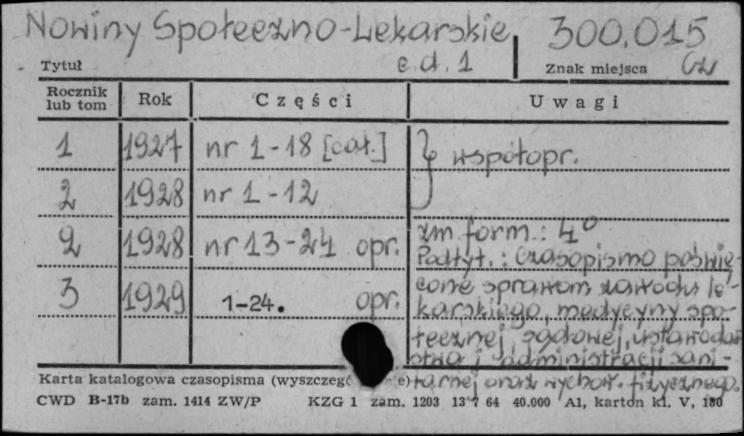 Nowiny Społeczno-Lekarskie 300.015
Tytuł c.d. 1 Znak miejsca Cz
Rocznik lub tom Rok Części Uwagi
1 1927 nr 1-18 [cał.] } współopr.
2 1928 nr 1-12
2 1928 nr 13-24 opr. zm form.: 4°
Podtyt.: Czasopismo poświę-
cone sprawom zawodu le-
3 1929 1-24. opr. karskiego, medycyny spo-
łecznej, sądowej, ustawodaw
stwa i administracji sani-
Karta katalogowa czasopisma (wyszczegó nie) tarnej oraz wychow. fizycznego.
CWD B-17b zam. 1414 ZW/P KZG 1 zam. 1203 13 7 64 40.000 A1, karton kl. V, 180